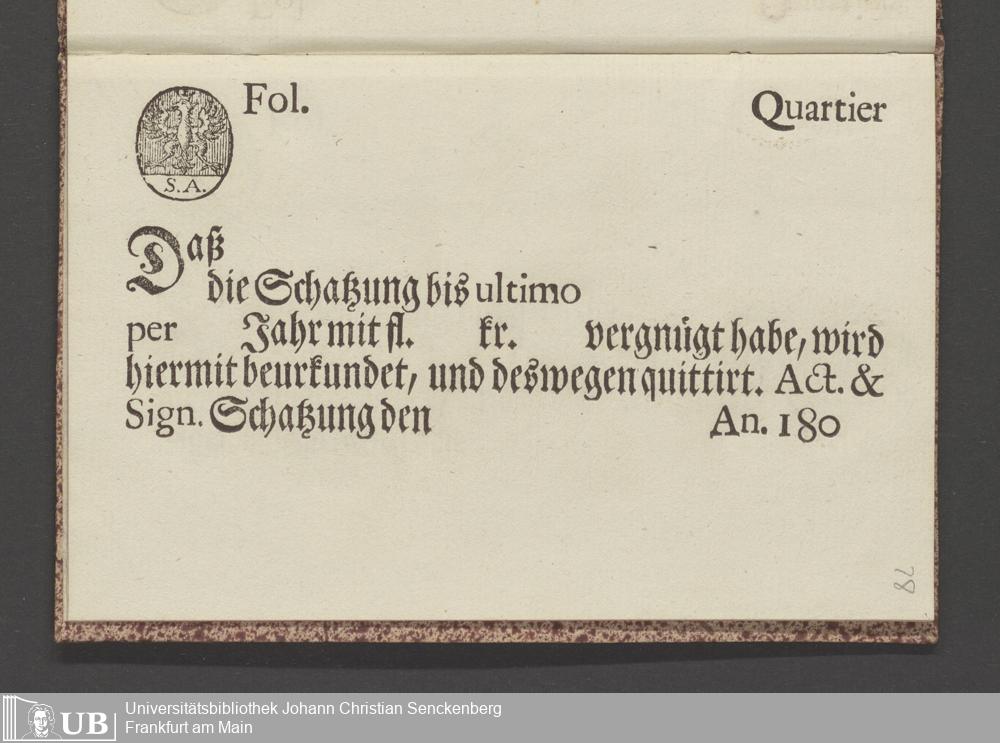 Fol. Quartier
S. A.
Daß
die Schatzung bis ultimo
per Jahr mit fl. kr. vergnügt habe, wird
hiermit beurkundet, und deswegen quittirt. Act. &
Sign. Schatzung den An. 180
78
UB
Universitätsbibliothek Johann Christian Senckenberg
Frankfurt am Main